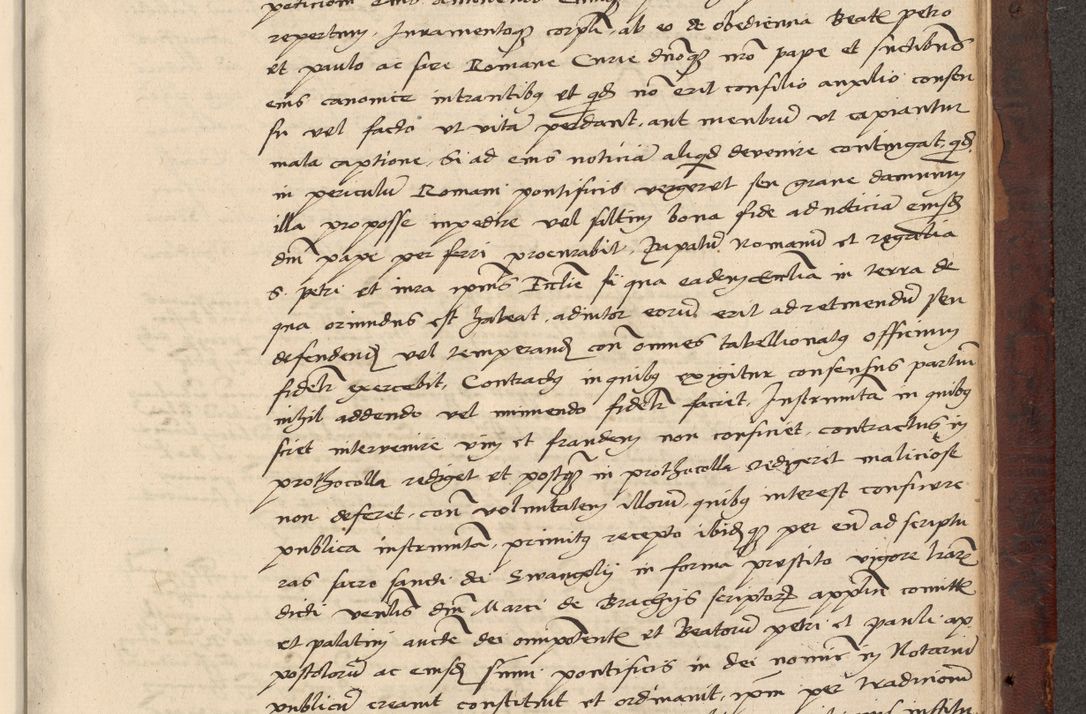 repertum, Juramentoqȝ corpli, ab eo de obediencia Beatr petro
et paulo ac sare Romane Curie dnoqȝ nro pape et suctibus
eius canonice intrantibȝ et qd no erit consilio auxilio consen
su vel facto ut vita perdant, aut menbru ut capiantur
mala captione, Si ad eius noticia aliqd devenire contingat, qd
in periculu Romani pontificis vergeret seu grave damnum
illa pro posse inpedire vel saltim bona fide ad noticia eiusd
dni pape per ferri procurabit, Papatu Romanu et regalia
S. petri et iura ipius Ecclie si qua eadem Ecclia in terra de
qua oriundus est habeat, adiutor eoru erit ad retinendu seu
defendend vel recuperand con omnes tabellionatȝ officium
fidelr exercebit, Contractȝ in quibȝ exigitur consensus partiu
nihil addendo vel minuendo fidelr faciet, Instrumta in quibȝ
sciet intervenire vim et fraudem non conficiet, contractus in
prothocolla rediget et postqȝ in prothocolla redigeret maliciose
non deferet, con voluntatem illoru, quibȝ interest conficere
publica instrumta, primitȝ recepto ibidȝqȝ per eu ad scriptu
ras sacro sancti dei Evangelij in forma prestito vigore lrar
dicti venlis dni Marci de Brachijs scriptor applin comitis
et palatini aucte dei omipotentr et Beatoru petri et pauli ap
postoloru ac eiusd sumi pontificis in dei nomine in Notariu
publicu creavit constituit et ordinavit, ipm per traditionem